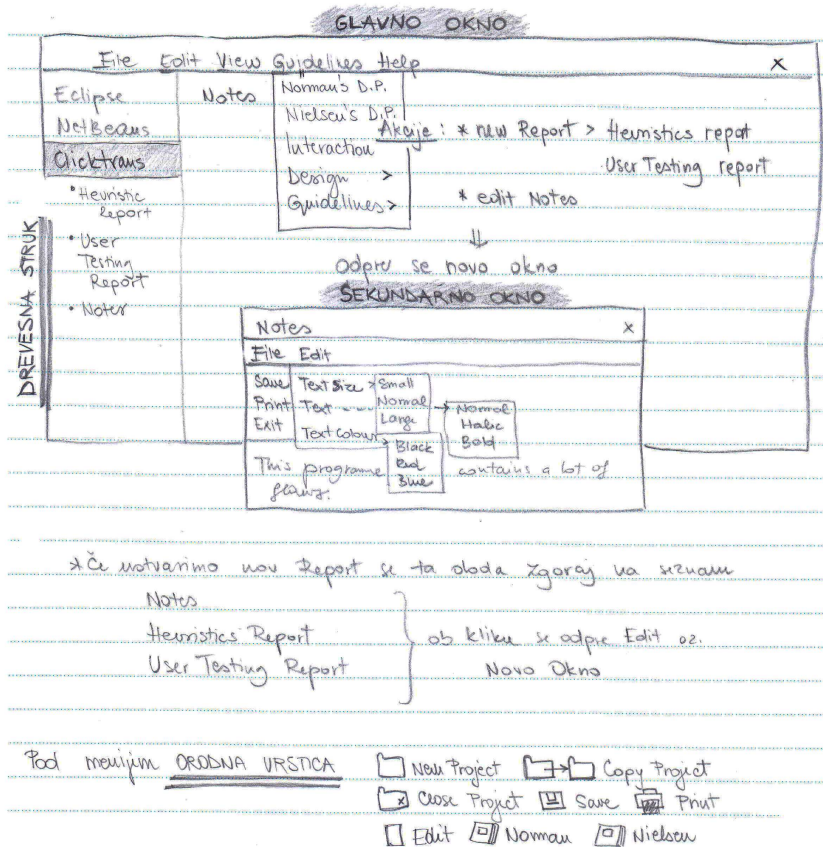 GLAVNO OKNO
File Edit View Guidelines Help X
Eclipse
NetBeans
Clicktrans
• Heuristic Report
• User Testing Report
• Notes
DREVESNA STRUK
Notes
Norman's D.P.
Nielsen's D.P.
Interaction
Design >
Guidelines >
Akcije : * new Report > Heuristics repot
User Testing report
* edit Notes
⇓
Odpre se novo okno
SEKUNDARNO OKNO
Notes x
File Edit
Save
Print
Exit
Text Size >
Text
Text Colour
Small
Normal
Large
Normal
Italic
Bold
Black
Red
Blue
This programme contains a lot of
flaws.
* Če ustvarimo nov Report se ta doda zgoraj na seznam
Notes
Heuristics Report
User Testing Report
ob kliku se odpre Edit oz.
Novo Okno
Pod menijim ORODNA VRSTICA
New Project Copy Project
Close Project Save Print
Edit Norman Nielsen